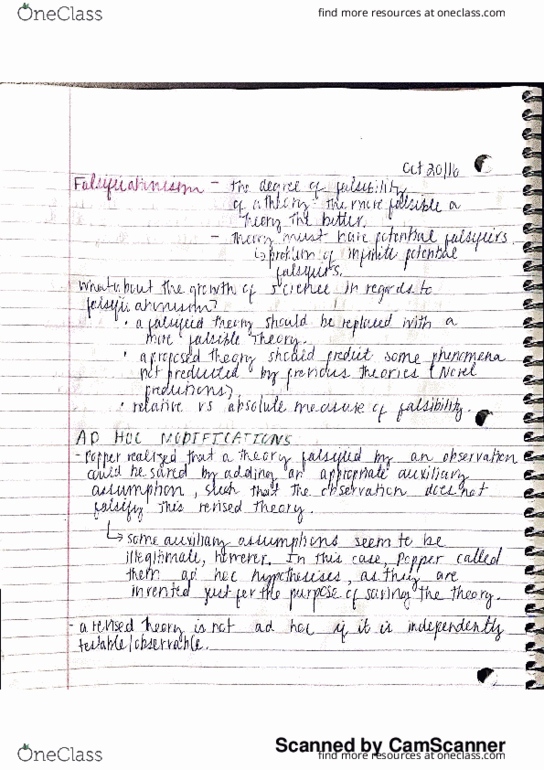 OneClass
find more resources at oneclass.com
Oct 20/16
Falsificationism - the degree of falsibility
of a theory: the more falsible a
theory the better.
- theory must have potential falsifiers
↳ problem of infinite potential
falsifiers.
What about the growth of science in regards to
falsificationism?
• a falsified theory should be replaced with a
more falsible theory.
• a proposed theory should predict some phenomena
not predicted by previous theories (Novel
predictions)
• relative vs absolute measure of falsibility.
AD HOC MODIFICATIONS
- Popper realised that a theory falsified by an observation
could be saved by adding an appropriate auxiliary
assumption, such that the observation does not
falsify this revised theory.
↳ some auxiliary assumptions seem to be
illegitimate, however. In this case, Popper called
them ad hoc hypothesises, as they are
invented just for the purpose of saving the theory.
- a revised theory is not ad hoc if it is independently
testable/observable.
Scanned by CamScanner
OneClass
find more resources at oneclass.com